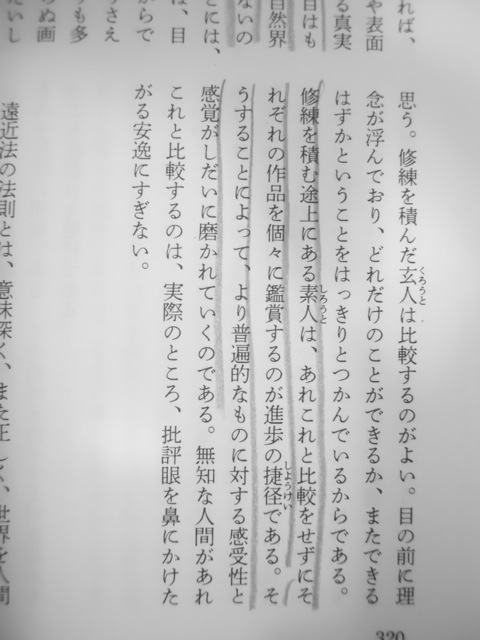 れば、
や表面
る真実
目はも
自然界
ないの
とには、
は、目
からで
さえ
も多
ぬ画
たいし
思う。修練を積んだ玄人は比較するのがよい。目の前に理
くろうと
念が浮んでおり、どれだけのことができるか、またできる
はずかということをはっきりとつかんでいるからである。
修練を積む途上にある素人は、あれこれと比較をせずにそ
しろうと
れぞれの作品を個々に鑑賞するのが進歩の捷径である。そ
しようけい
うすることによって、より普遍的なものに対する感受性と
感覚がしだいに磨かれていくのである。無知な人間があれ
これと比較するのは、実際のところ、批評眼を鼻にかけた
がる安逸にすぎない。
遠近法の法則とは、意味深く、また正しく、世界を人間
320